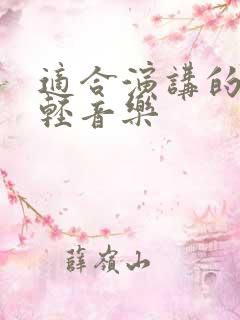 適合演講的
輕音樂
薛嶺山